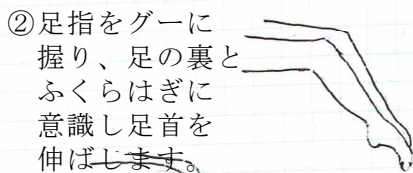 ②足指をグーに
握り、足の裏と
ふくらはぎに
意識し足首を
伸ばします。